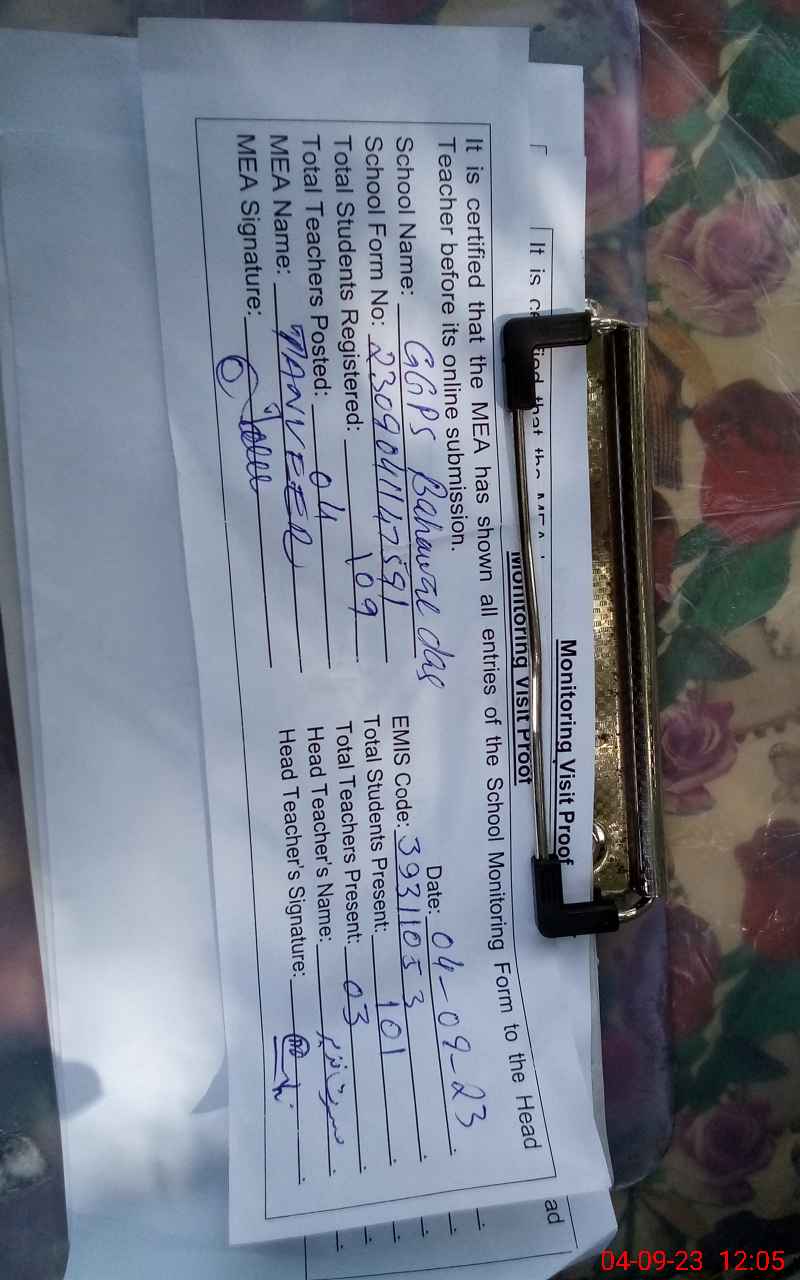 Monitoring Visit Proof
It is ce
fied that the MEA
Monitoring Visit Proof
It is certified that the MEA has shown all entries of the School Monitoring Form to the Head
Teacher before its online submission.
Date: 04-09-23
School Name: GGPS Bahawal das
EMIS Code: 39311053
School Form No: 2309041147591
Total Students Present: 101
Total Students Registered: 109
Total Teachers Present: 03
Total Teachers Posted: 04
Head Teacher's Name:
MEA Name: TANVEER
Head Teacher's Signature:
MEA Signature:
ad
04-09-23 12:05